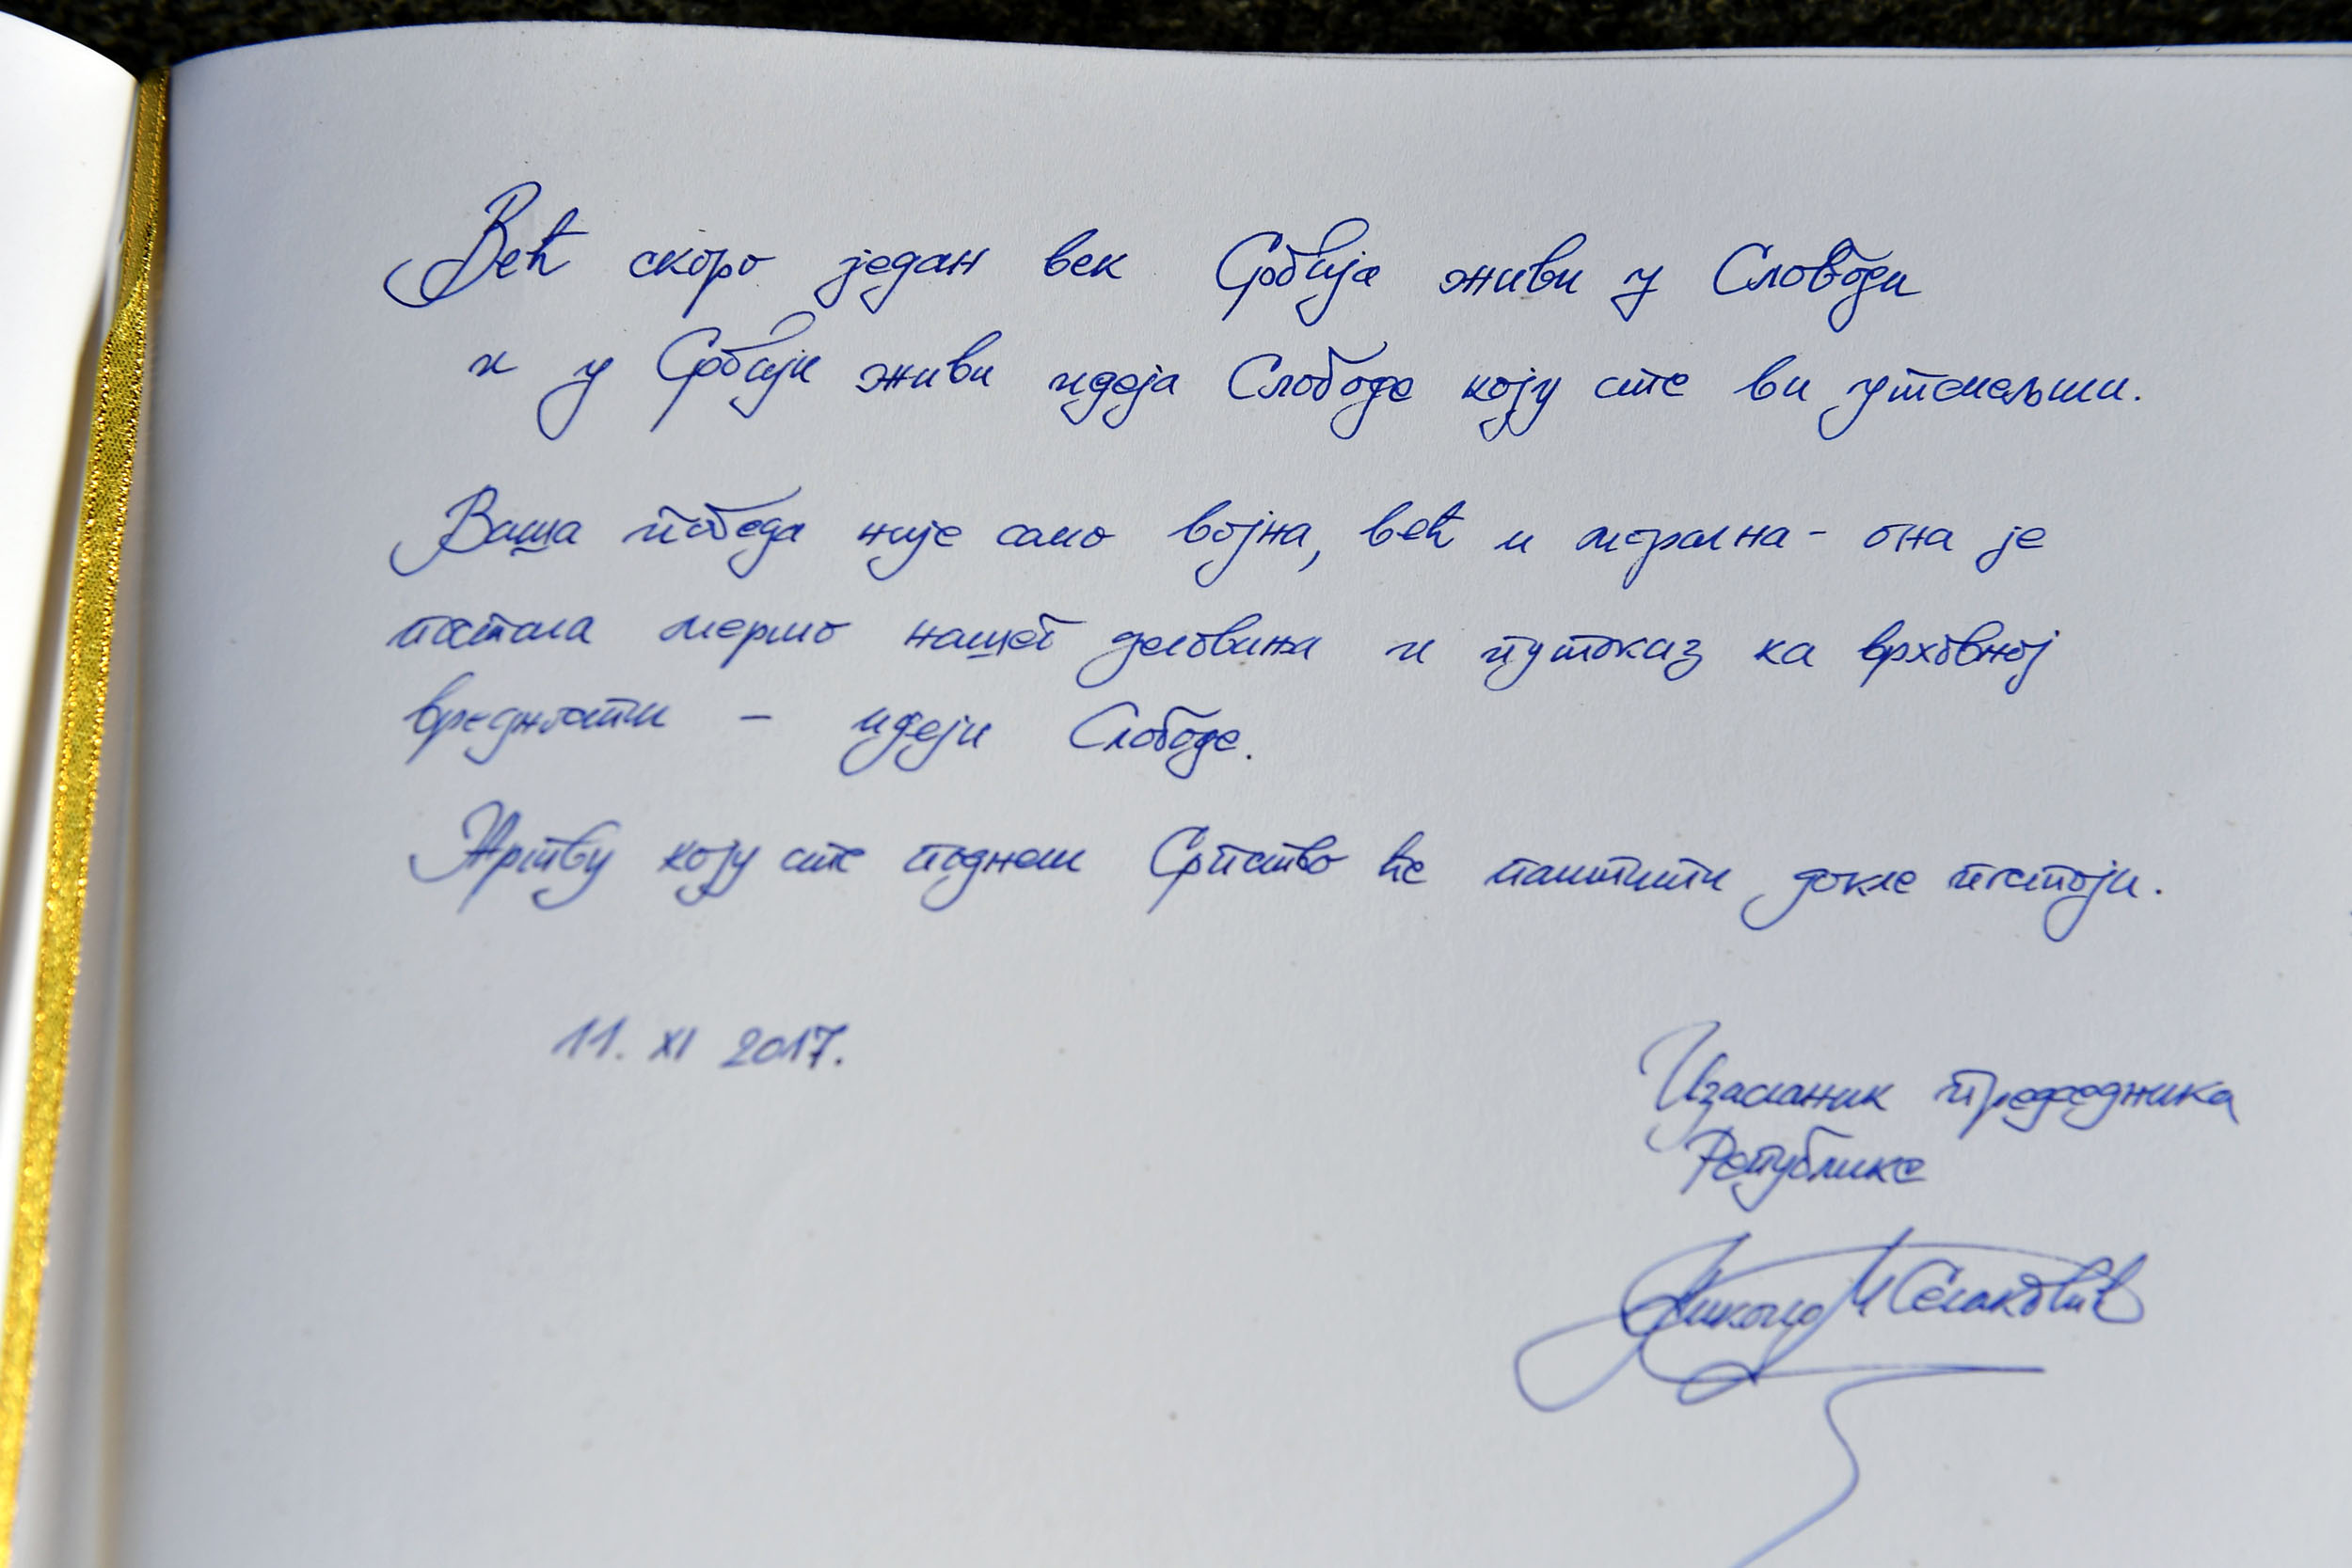 Већ скоро један век Србија живи у Слободи
и у Србији живи идеја Слободе коју сте ви утемељили.
Ваша победа није само војна, већ и морална - она је
постала мерило нашег деловања и путоказ ка врховној
вредности - идеји Слободе.
Жртву коју сте поднели Српство ће памтити докле постоји.
11. XI 2017.
Изасланик председника
Републике
Никола Селаковић